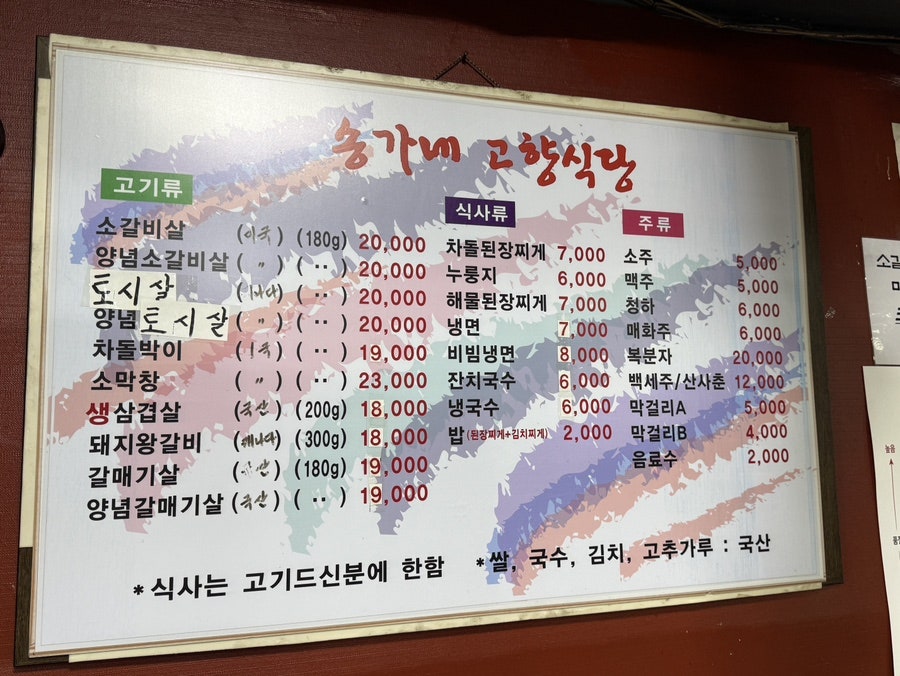 송가네 고향식당
고기류
소갈비살 (미국) (180g) 20,000
양념소갈비살 ( 〃 ) ( ·· ) 20,000
토시살 ( ·· ) 20,000
양념토시살 ( 〃 ) ( ·· ) 20,000
차돌박이 ( ·· ) 19,000
소막창 ( 〃 ) ( ·· ) 23,000
생삼겹살 (국산) (200g) 18,000
돼지왕갈비 (캐나다) (300g) 18,000
갈매기살 (180g) 19,000
양념갈매기살 (국산) ( ·· ) 19,000
식사류
차돌된장찌게 7,000
누룽지 6,000
해물된장찌게 7,000
냉면 7,000
비빔냉면 8,000
잔치국수 6,000
냉국수 6,000
밥(된장찌게+김치찌게) 2,000
주류
소주 5,000
맥주 5,000
청하 6,000
매화주 6,000
복분자 20,000
백세주/산사춘 12,000
막걸리A 5,000
막걸리B 4,000
음료수 2,000
*식사는 고기드신분에 한함
*쌀, 국수, 김치, 고추가루 : 국산
소갈
높음